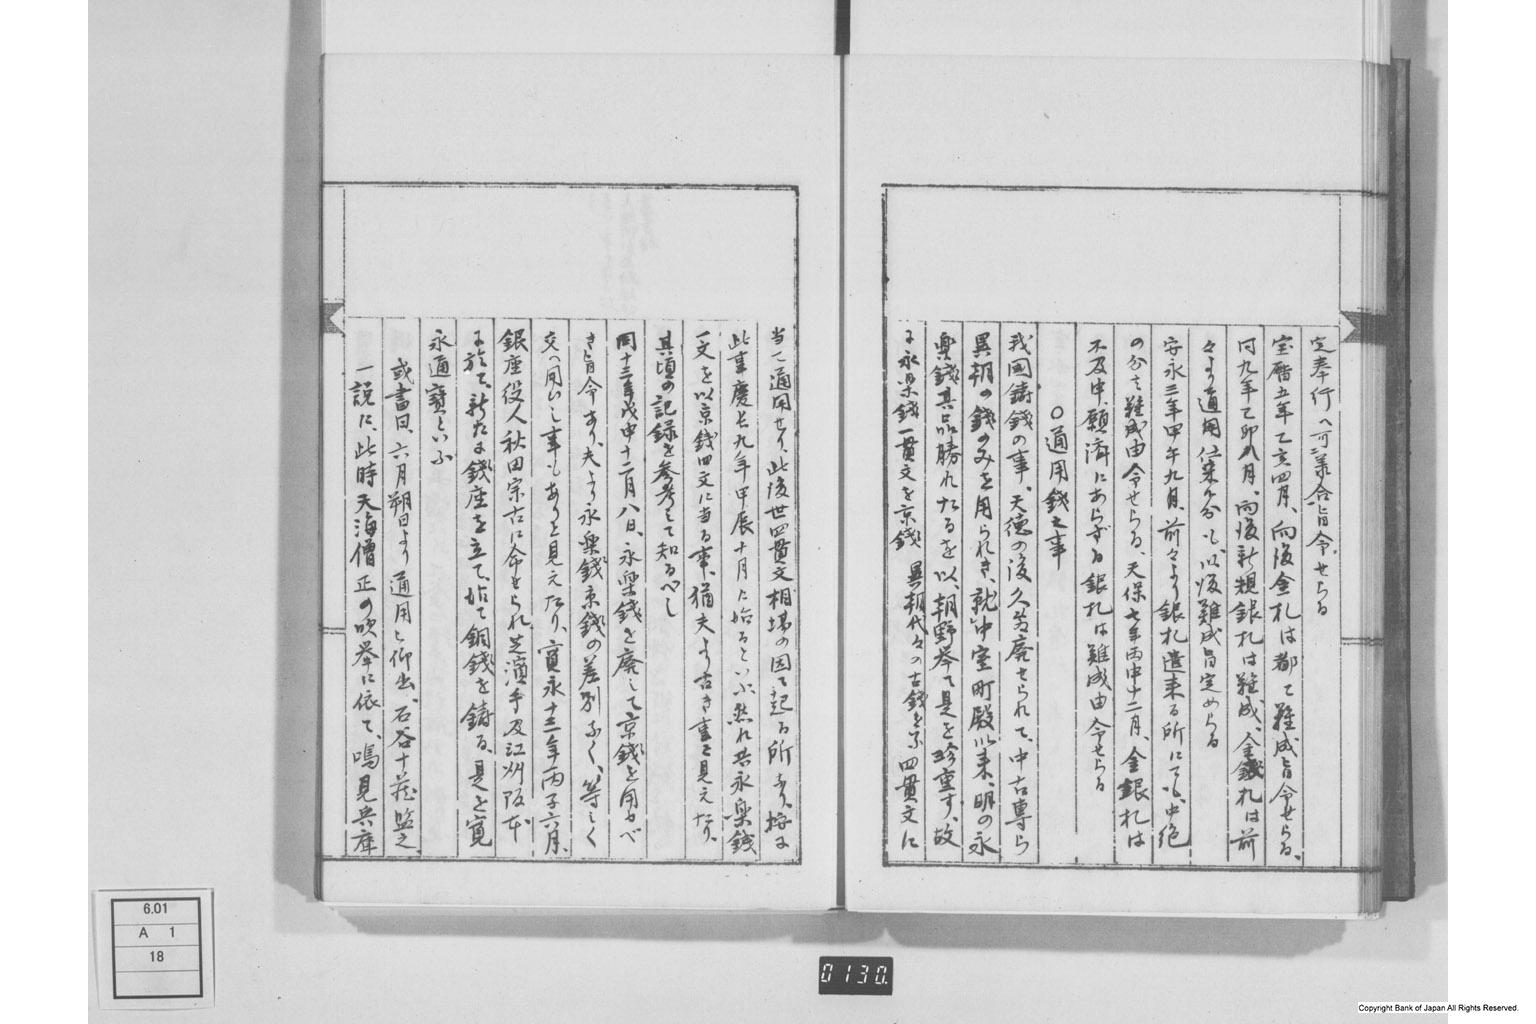 定奉行へ可差合旨令せらる
宝暦五年乙亥四月、向後金札は都て難成旨令せらる、
同九年乙卯八月、向後新規銀札は難成、金錢札は前
々より通用仕来分も以後難成旨定めらる
安永三年甲午九月、前々より銀札遣来る所にても、中絶
の分は難成由令せらる、天保七年丙申十二月、金銀札は
不及申、願済にあらざる銀札は難成由令せらる
○通用錢之事
我国鋳錢の事、天徳の後久しく廃せられて、中古専ら
異朝の錢のみを用られき、就中室町殿以来、明の永
樂錢其品勝れたるを以、朝野挙て是を珍重す、故
に永樂錢一貫文を京錢 異朝代々の古錢を云 四貫文に
当て通用せり、此後世四貫文相場の因て起る所なり、按に
此事慶長九年甲辰十月に始るといふ、然れ共永樂錢
一文を以京錢四文に当る事、猶夫より古き書に見えたり、
其頃の記録を参考して知るべし
同十三年戊申十二月八日、永樂錢を廃して京錢を用ゆべ
き旨令あり、夫より永樂錢京錢の差別なく、等しく
交へ用ひし事もありと見えたり、寛永十三年丙子六月、
銀座役人秋田宗古に命せられ芝濱手及江州阪本
に於て、新たに錢座を立て、始て銅錢を鋳る、是を寛
永通寶といふ
或書曰、六月朔日より通用と仰出、石谷十蔵監之
一説に、此時天海僧正の吹挙に依て、鳴見兵庫
6.01
A 1
18
0130.
Copyright Bank of Japan All Rights Reserved.